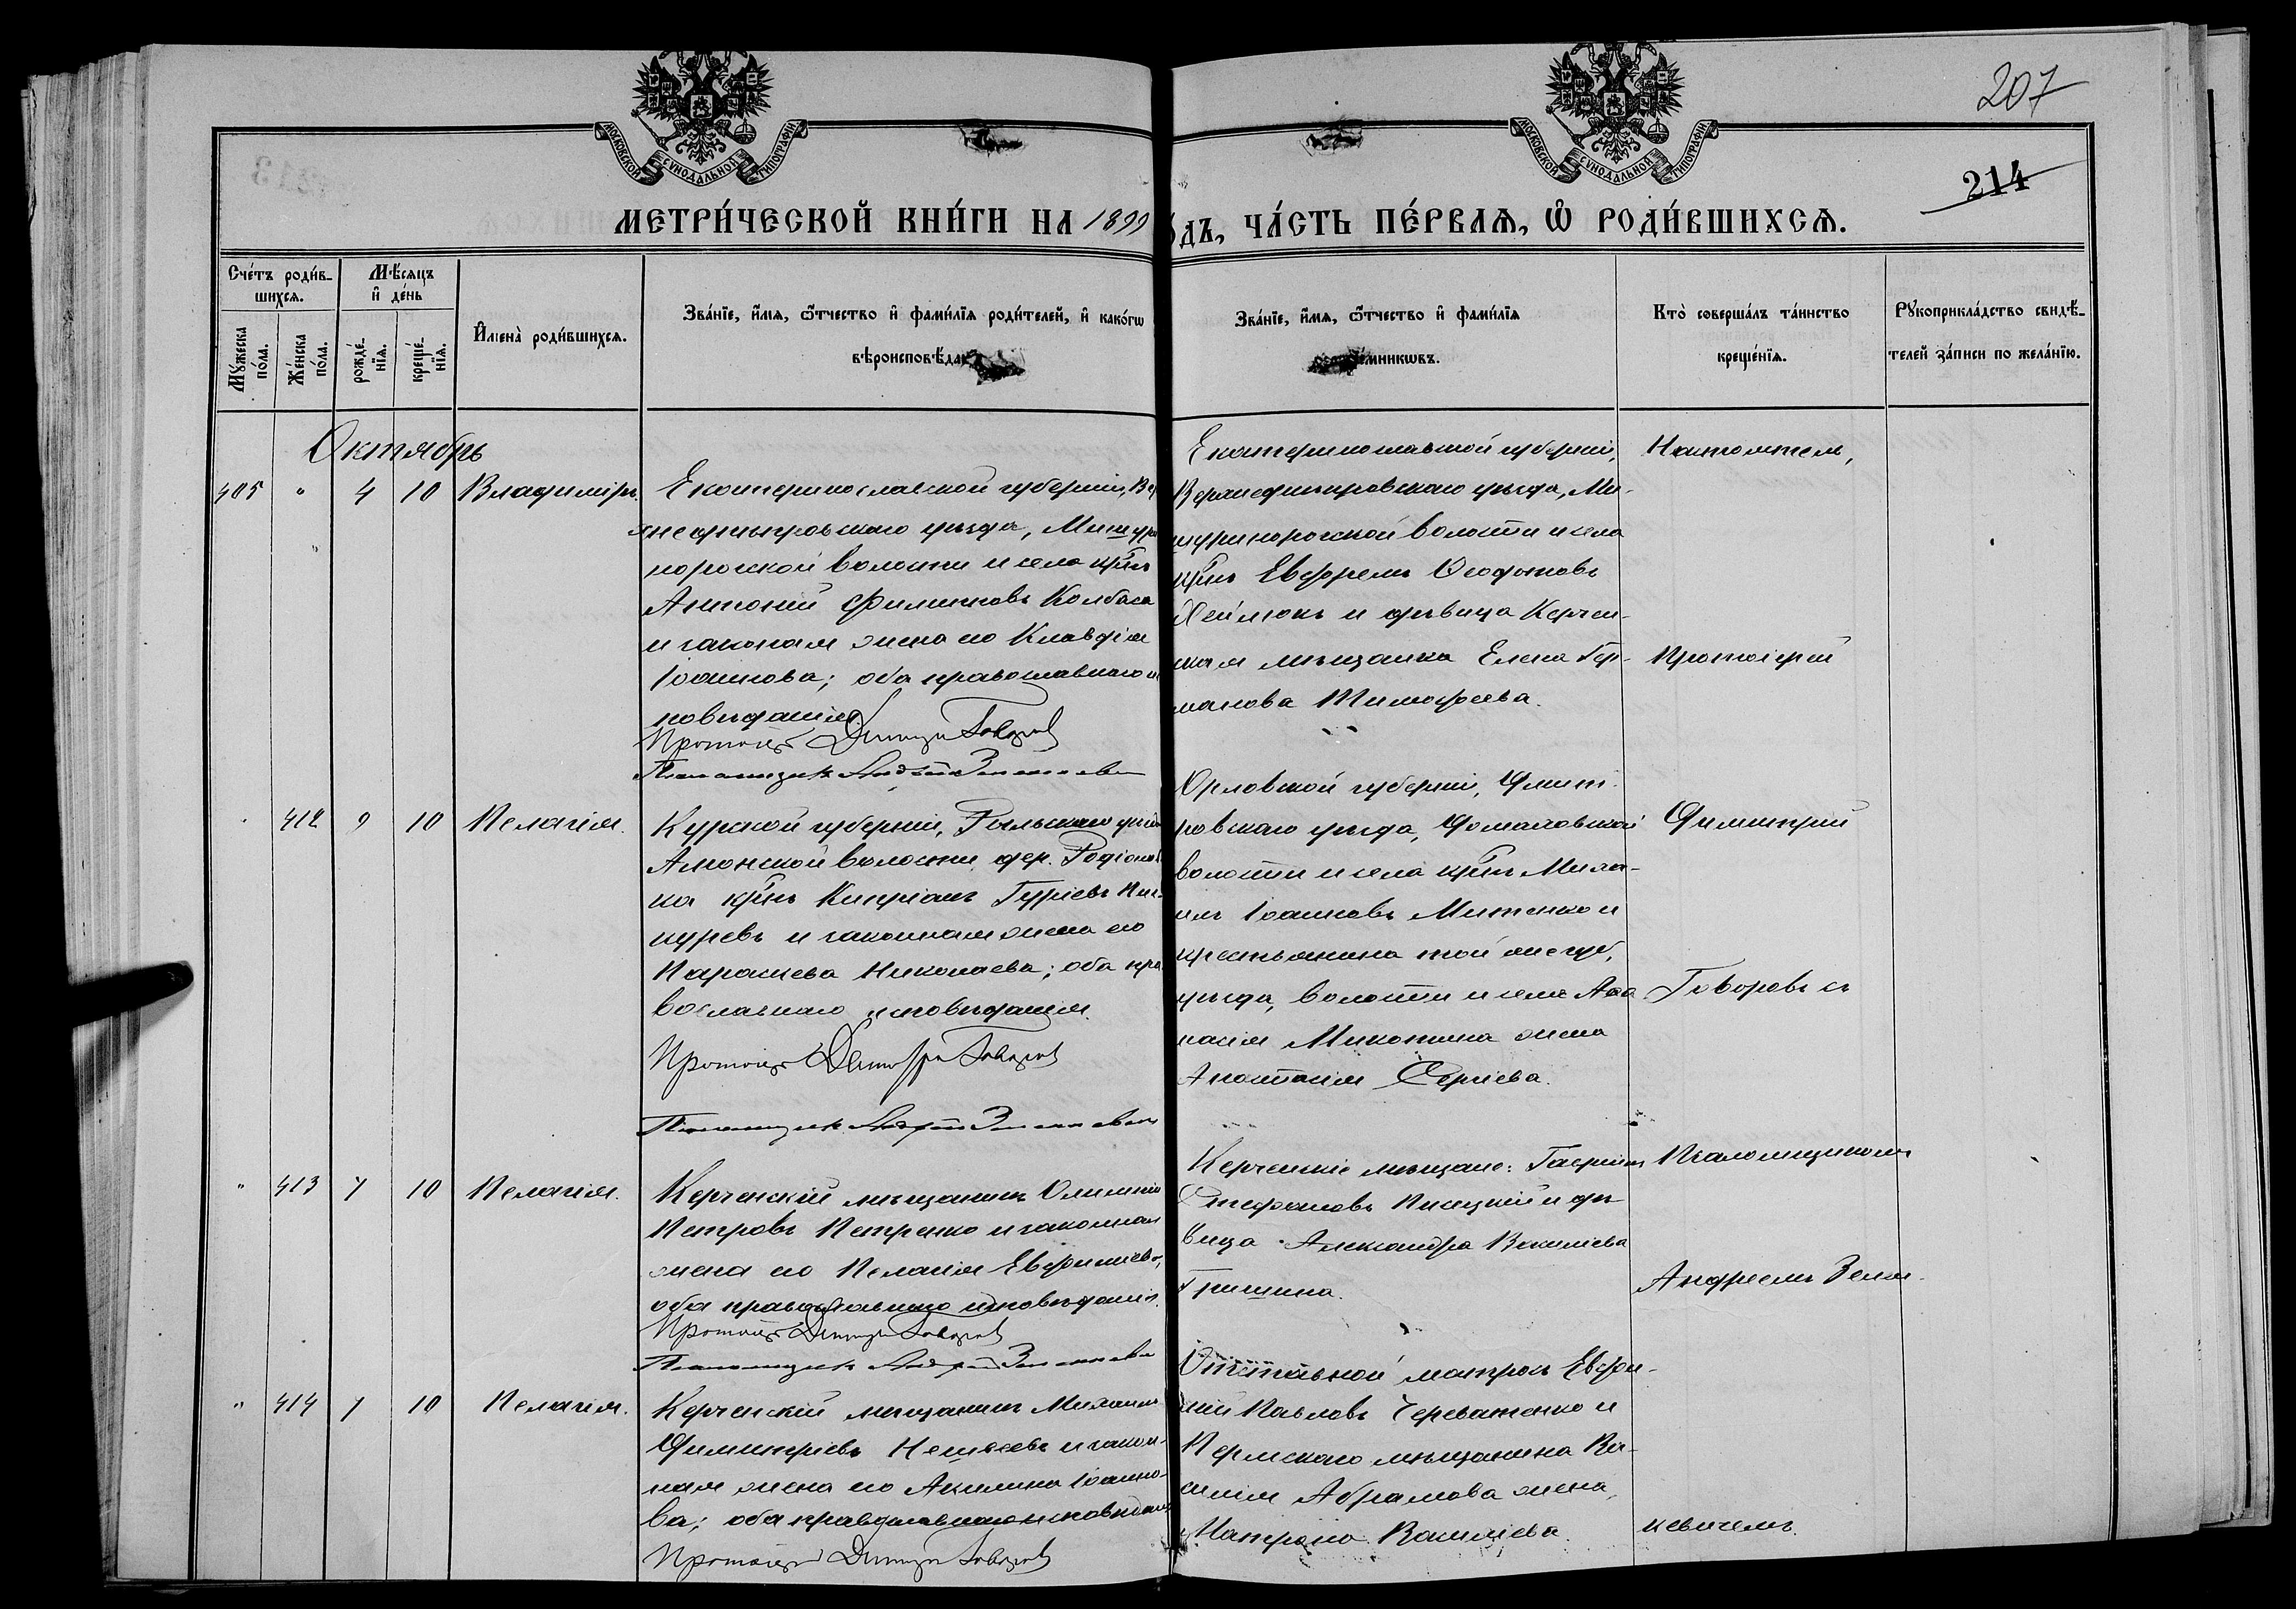 207
214
МОСКОВСКОЙ СУНОДАЛЬНОЙ ТИПОГРАФІИ
МОСКОВСКОЙ СУНОДАЛЬНОЙ ТИПОГРАФІИ
МЕТРИ́ЧЕСКОЙ КНИ́ГИ НА 1899
ДЪ, ЧА́СТЬ ПЕ́РВАЯ, Ѡ РОДИ́ВШИХСЯ.
Сче́тъ роди́в-
шихся.
Мѣ́сяцъ
и҆ де́нь
Мꙋжеска по́ла.
Же́нска по́ла.
рожде́-нїя.
креще́-нїя.
И҆мена̀ роди́вшихся.
Зва́нїе, и҆́мя, ѻ҆́тчество и҆ фами́лїя роди́телей, и҆ како́гѡ
вѣроисповѣда
Зва́нїе, и҆́мя, ѻ҆́тчество и҆ фами́лїя
е́мникѡвъ.
Кто̀ соверша́лъ та́инство
креще́нїя.
Рꙋкоприкла́дство свидѣ́-
телей за́писи по жела́нїю.
Октябрь
405 " 4 10 Владиміръ.
Екатеринославской губерніи, Вер
хнеднѣпровскаго уѣзда, Мишури
порогской волости и села кр̃нъ
Антоній Филипповъ Колбаса
и законная жена его Клавдія
Іоаннова; оба православнаго ис
повѣданія.
Протоіер Димитрій Говоров
Псаломщикъ Андрей Зенкевич
Екатеринославской губерніи,
Верхнеднѣпровскаго уѣзда, Ми-
шуринорогской волости и села
кр̃нъ Евфремъ Ѳеодотовъ
Хейлюкъ и дѣвица Керчен-
ская мѣщанка Елена Гер-
манова Тимофеева.
Настоятель,
Протоіерей
Димитрій
Говоровъ съ
Псаломщикомъ
Андреемъ Зен-
кевичемъ.
412 9 10 Пелагія.
Курской губерніи, Рыльскаго уѣзда
Амонской волости, дер. Родіонов
ка кр̃нъ Кипріанъ Гуріевъ
и законная жена его
Параскева Николаева; оба пра
вославнаго исповѣданія.
Протоіер Димитрій Говоров
Псаломщикъ Андрей Зенкевич
Орловской губерніи, Дмит
ровскаго уѣзда, Домаховской
волости и села кр̃нъ Миха-
илъ Іоанновъ Митенко и
крестьянина той же губ.,
уѣзда, волости и села Аѳа
насія Микотина жена
Анастасія Сергіева.
" 413 7 10 Пелагія.
Керченскій мѣщанинъ Олимпій
Петровъ Петренко и законная
жена его Пелагія Евфиміева,
оба православнаго исповѣданія.
Протоіер Димитрій Говоров
Псаломщикъ Андрей Зенкевич
Керченскіе мѣщане: Гавріилъ
Стефановъ Писецкій и дѣ
вица Александра Василіева
Гришина.
" 414 7 10 Пелагія.
Керченскій мѣщанинъ Михаилъ
Димитріевъ и закон-
ная жена его Акилина Іоанно-
ва; оба православнаго исповѣданія
Протоіер Димитрій Говоров
Отставной матросъ Евфи-
мій Павловъ Череватенко и
Пермскаго мѣщанина Ва-
силія Абрамова жена,
Матрона Василіева.